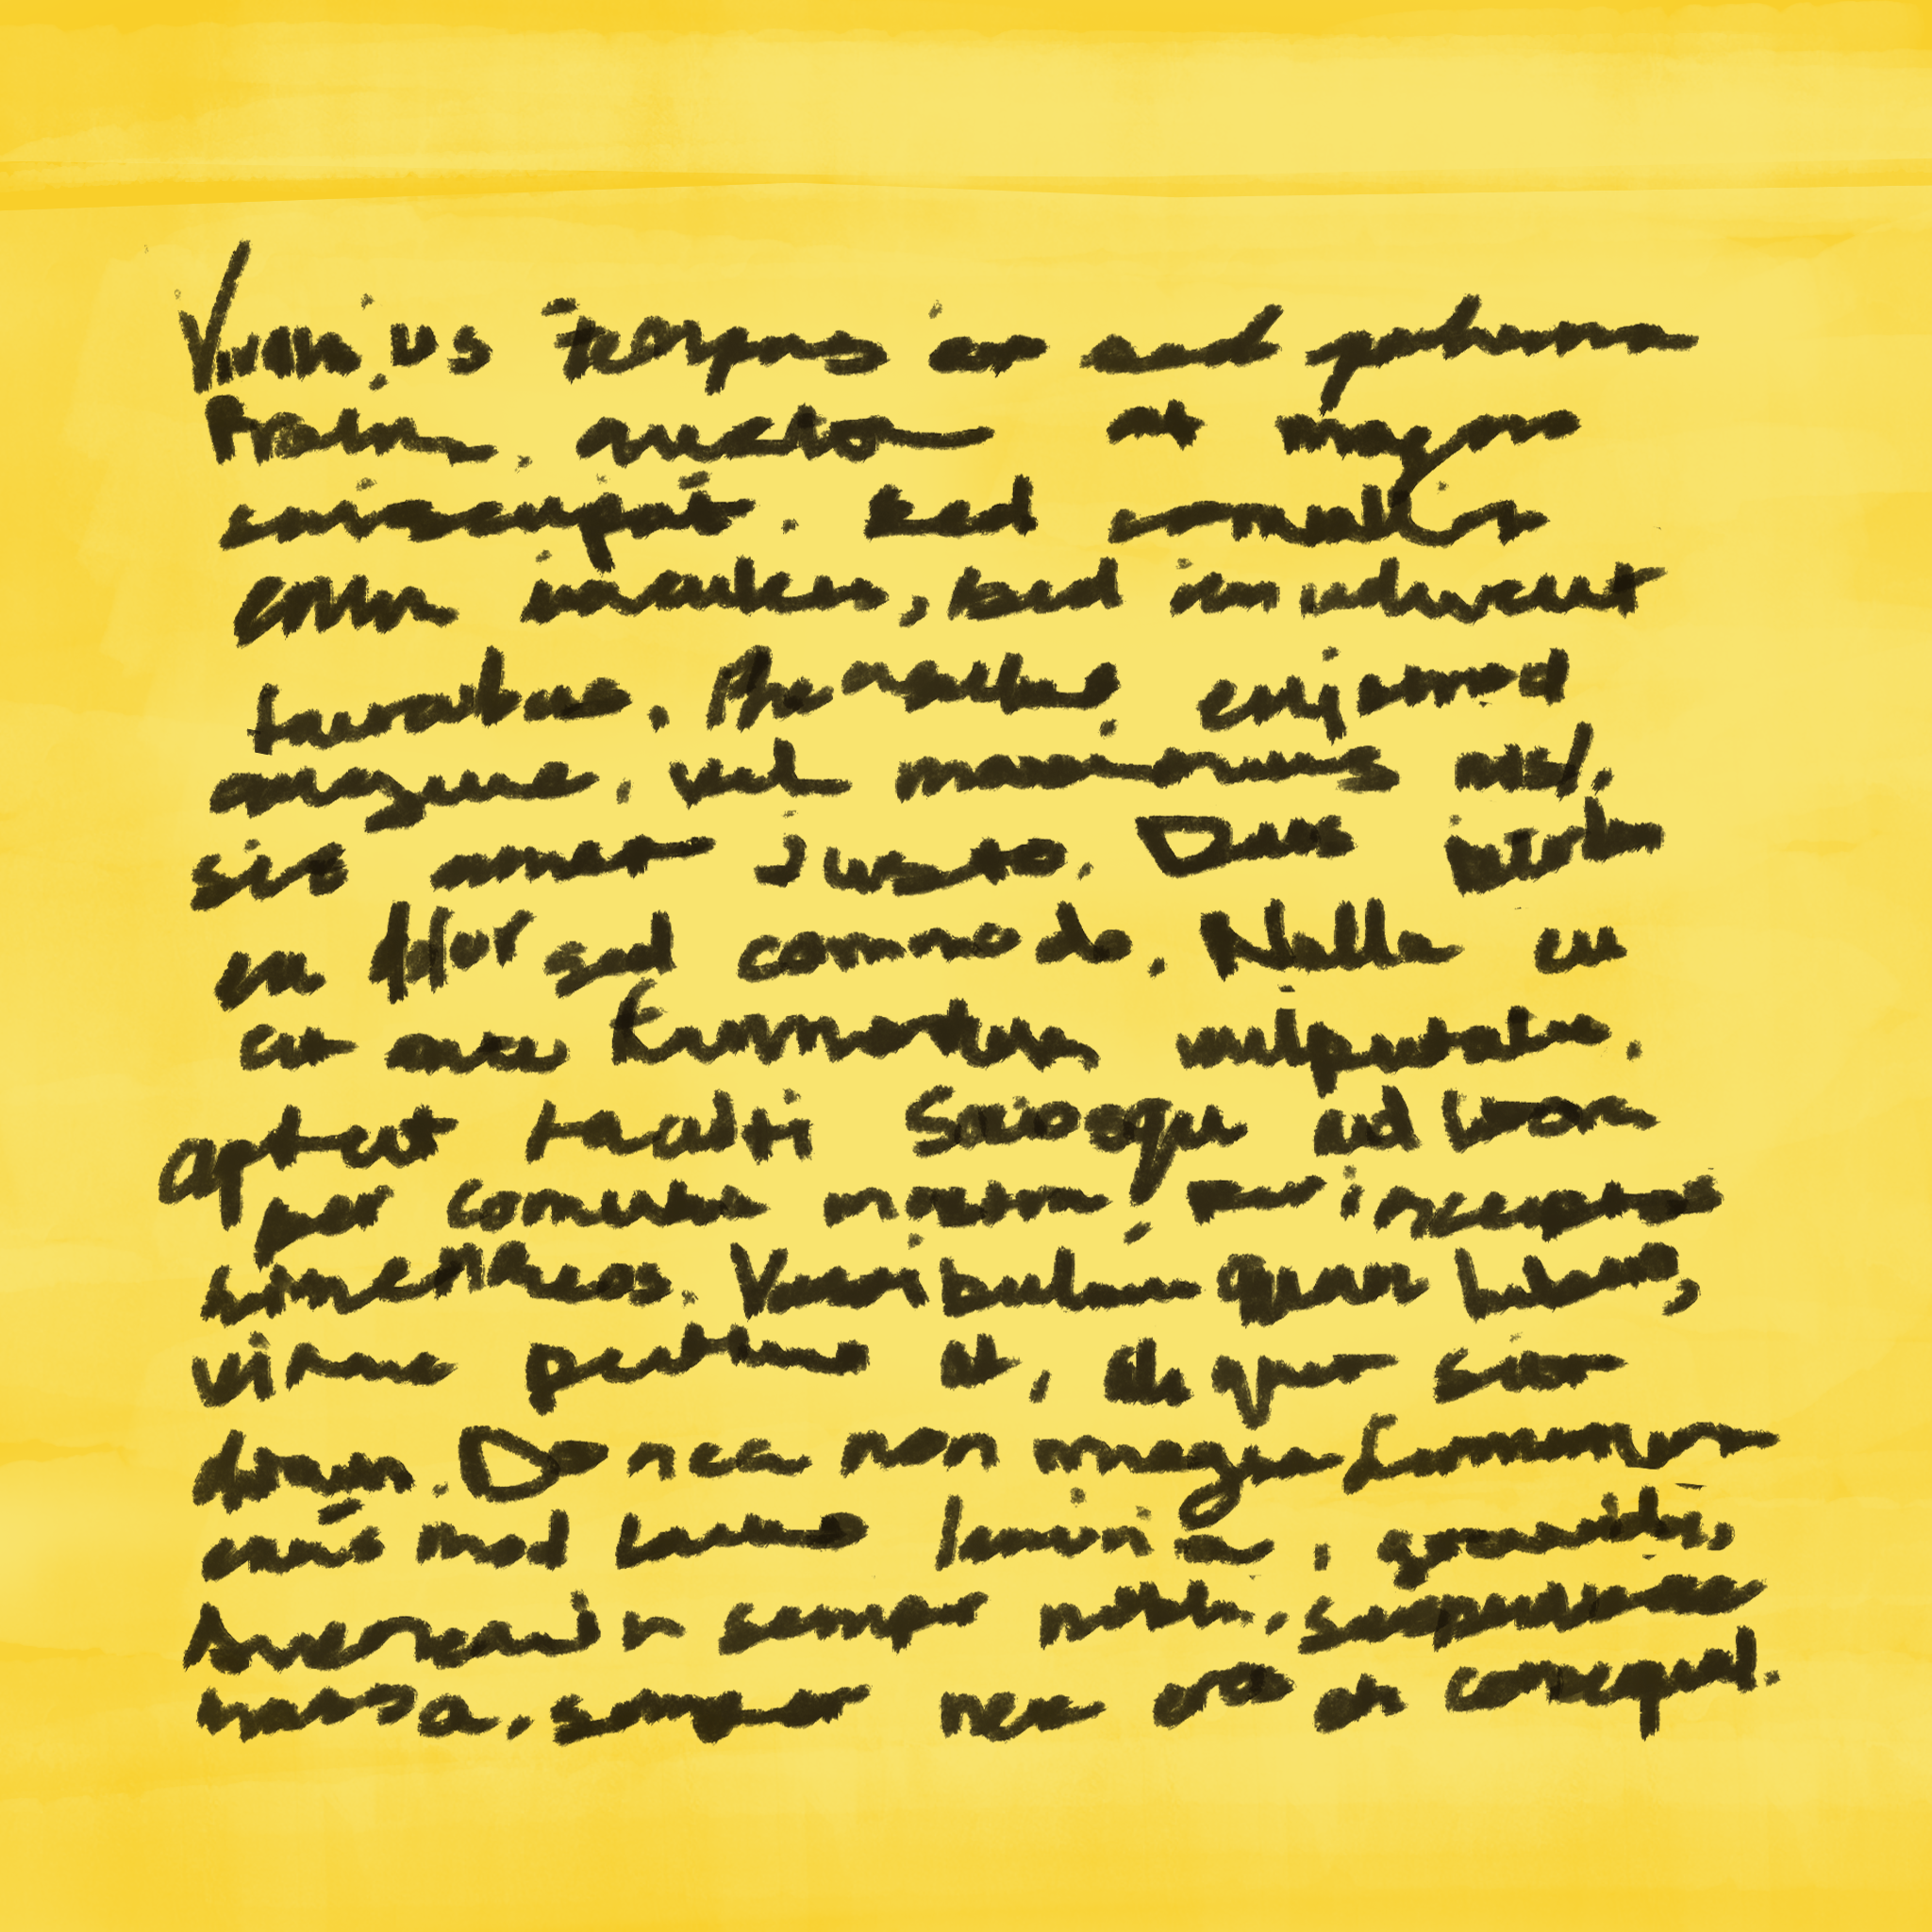 Vivamus tempus ex sed pulvinar
Proin auctor at magna
suscipit. Sed mollis
enim iaculis, sed tincidunt
faucibus. Phasellus euismod
augue, vel maximus nisl,
sit amet justo. Duis
eu dolor sed commodo. Nulla eu
ex ante fermentum vulputate.
aptent taciti sociosqu ad litora
per conubia nostra, per inceptos
himenaeos. Vestibulum quam
vitae pretium at, aliquam
Donec non magna
euismod lacus lacinia, gravida,
semper nibh. Suspendisse
massa, semper nec eros at consequat.